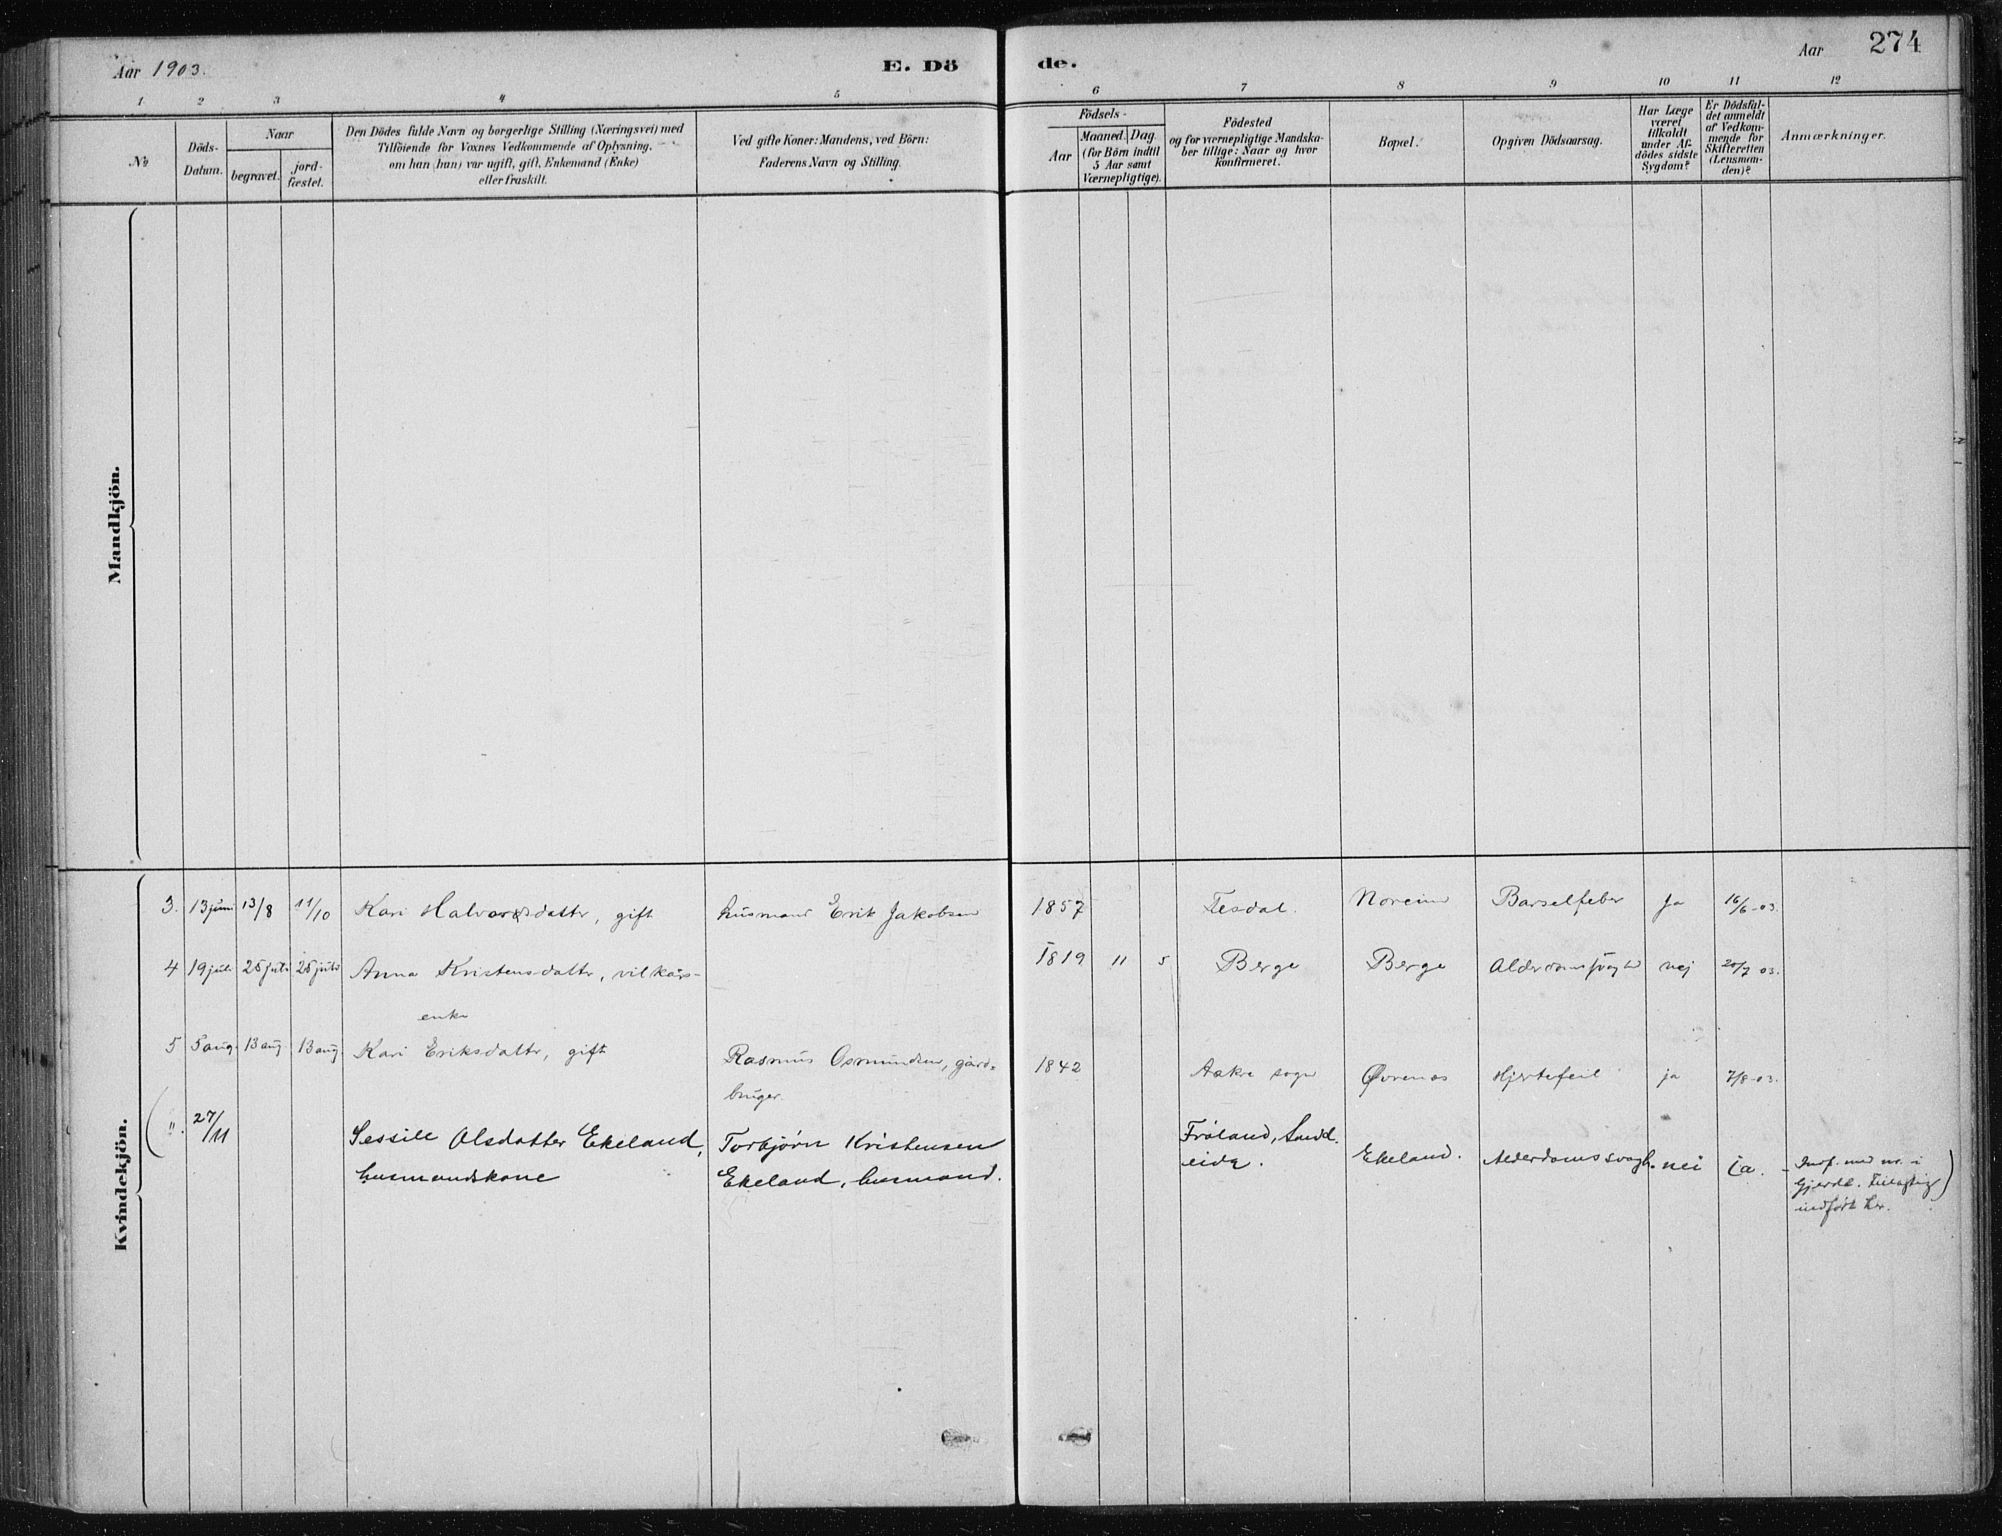 Aar 1903.
E. Dö
de.
Aar
274
1 2 3 4 5
6 7 8 9 10 11 12
No
Döds-
Datum.
Naar
begravet.
jord-
fæstet.
Den Dödes fulde Navn og borgerlige Stilling (Næringsvei) med
Tilföiende for Voxnes Vedkommende af Oplysning,
om han (hun) var ugift, gift, Enkemand (Enke)
eller fraskilt.
Ved gifte Koner: Mandens, ved Börn:
Faderens Navn og Stilling.
Födsels-
Aar
Maaned. Dag.
(for Börn indtil
5 Aar samt
Værnepligtige).
Födested
og for værnepligtige Mandska-
ber tillige: Naar og hvor
konfirmeret.
Bopæl.
Opgiven Dödsaarsag.
Har Læge
været
tilkaldt
under Af-
dödes sidste
Sygdom?
Er Dödsfal-
det anmeldt
af Vedkom-
mende for
Skifteretten
(Lensman-
den)?
Anmærkninger.
Mandkjön.
Kvindekjön.
3. 13 juni 13/8 11/10 Kari Halvorsdattr, gift husmand Erik Jakobsen 1857 Tesdal. Noreim Barselfeber Ja 16/6-03.
4 19 juli 25 juli 25 juli Anna Kristensdattr, vilkårs- 1819 11 5 Berge Berge Alderdomssvaghed nej 20/7 03.
enke
5 5 aug. 13 aug 13 aug. Kari Eriksdattr, gift Rasmus Osmundsen, gård- 1842 Aakre sogn Øvrenes Hjertefeil ja 7/8-03.
bruger.
( ". 27/11 Sessile Olsdatter Ekeland, Torbjørn Kristensen Frøland, Sand- Ekeland. Alderdomssvagh. nei ja. - Indf. med nr. i
husmandskone Ekeland, husmand. eide. Gjerde. Feilagtig
indført her. )